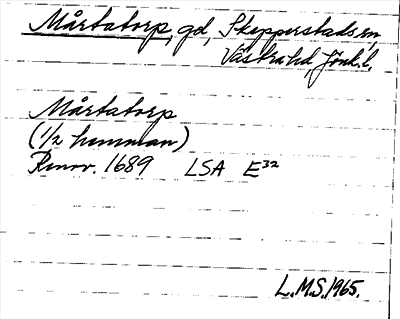 Mårtatorp, gd, Skepperstads sn,
Västra hd, Jönk. l.
Mårtatorp
(1/2 hemman)
Renov. 1689 LSA E32
L.M.S. 1965.